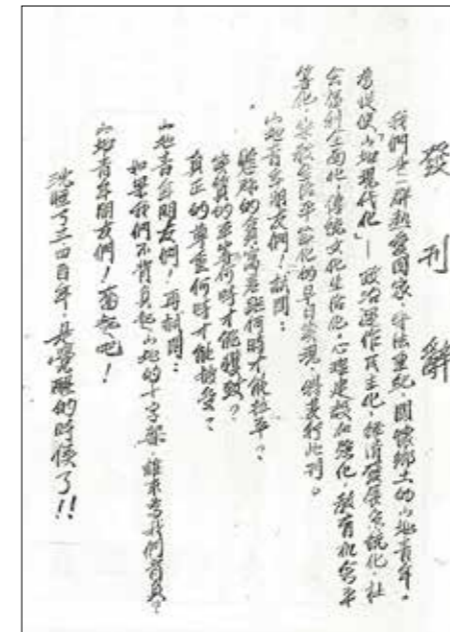 發刊辭
我們是一群熱愛國家、守法重紀、關懷鄉土的山地青年。
為促使「山地現代化」—政治運作民主化、經濟發展系統化、社
會福利全面化、傳統文化生活化、心理建設加強化、教育機會平
等化、宗教生活平衡化的早日實現，創發行此刊。
山地青年朋友們！試問：
懸殊的貧富差距何時才能拉平？
實質的平等何時才能獲致？
真正的尊重何時才能接受？
山地青年朋友們！再試問：
如果我們不背負起山地的十字架，誰來為我們背負？
山地青年朋友們！奮起吧！
沈睡了三四百年，是覺醒的時候了!!